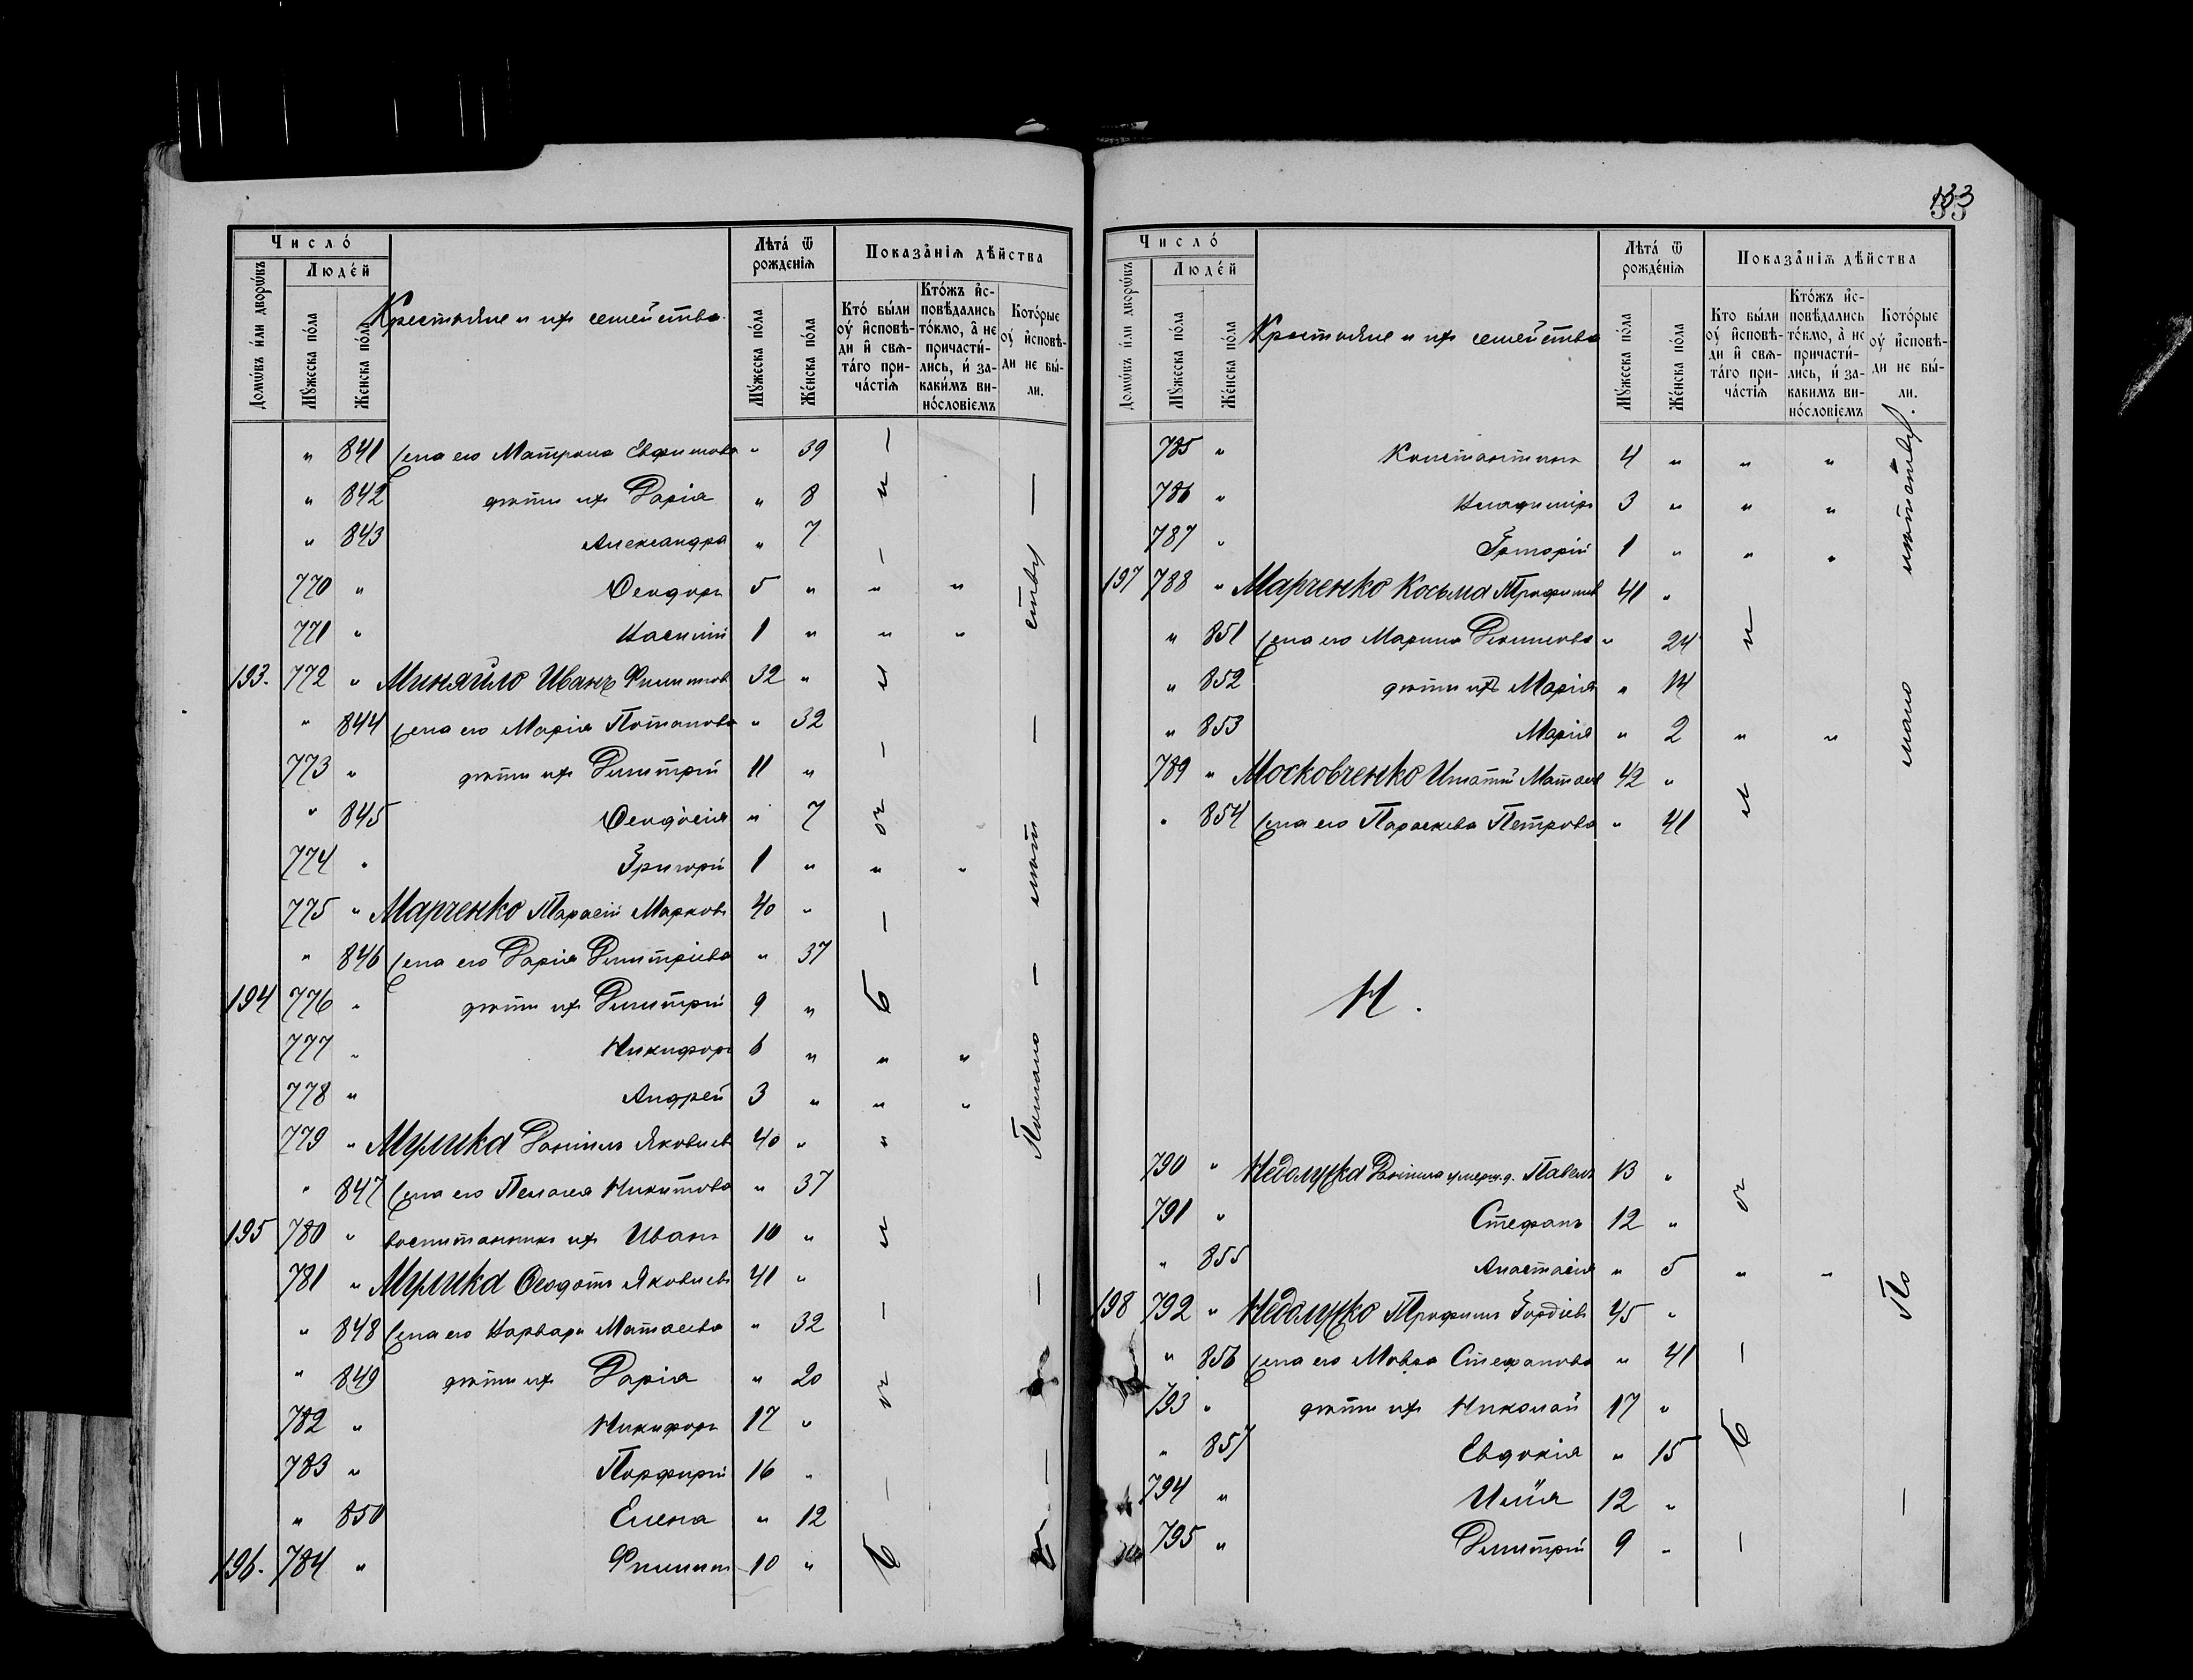 133
Число́
Люде́й
Домѡ́въ и҆́ли дворѡ́въ
Мꙋ́жеска по́ла
Же́нска по́ла
Крестьяне и ихъ семейства.
Лѣта́ ѿ рожде́нїѧ
Мꙋ́жеска по́ла
Же́нска по́ла
Показа̑нїѧ дѣ́йства
Кто́ бы́ли оу҆ и҆сповѣ-
ди и҆ свѧ-
та́го при-
ча́стїѧ
Кто́жъ и҆с-
повѣ́дались
то́кмо, а҆ не
причасти́-
лись, и҆ за-
каки́мъ ви-
носло́вїемъ
Кото́рые
оу҆ и҆сповѣ́-
ди не бы́-
ли.
" 841 жена его Матрона Евфимова " 39
" 842 дѣти ихъ Дарія " 8
" 843 Александра " 7
770 " Ѳеодоръ 5 " " "
771 " Василій 1 " " "
193. 772 " Миняйло Иванъ Филипповъ 32 "
" 844 жена его Марія Потапова " 32
773 " дѣти ихъ Димитрій 11 "
" 845 Ѳеодосія " 7
774 " Григорій 1 " " "
775 " Марченко Тарасій Марковъ 40 "
" 846 жена его Дарія Димитріева " 37
194 776 " дѣти ихъ Димитрій 9 "
777 " Никифоръ 6 " " "
778 " Андрей 3 " " "
779 " Мулика Даніилъ Яковлевъ 40 " "
" 847 жена его Пелагея Никитова " 37
195 780 " воспитанникъ ихъ Иванъ 10 "
781 " Мулика Ѳеодотъ Яковлевъ 41 "
" 848 жена его Варвара Матѳеева " 32
" 849 дѣти ихъ Дарія " 20
782 " Никифоръ 17 "
783 " Порфирій 16 "
" 850 Елена " 12
196. 784 " Филиппъ 10 "
Число́
Люде́й
Домѡ́въ и҆́ли дворѡ́въ
Мꙋ́жеска по́ла
Же́нска по́ла
Крестьяне и ихъ семейства
Лѣта́ ѿ рожде́нїѧ
Мꙋ́жеска по́ла
Же́нска по́ла
Показа̑нїѧ дѣ́йства
Кто бы́ли оу҆ и҆сповѣ́-
ди и҆ свѧ-
та́го при-
ча́стїѧ
Кто́жъ и҆с-
повѣ́дались
то́кмо, а҆ не
причасти́-
лись, и҆ за-
каки́мъ ви-
носло́вїемъ
Кото́рые
оу҆ и҆сповѣ́-
ди не бы́-
ли.
785 " Константинъ 4 " " "
786 " Владиміръ 3 " " "
787 " Григорій 1 " " "
197 788 " Марченко Косьма Трофимовъ 41 "
" 851 жена его Марина " 24
" 852 дѣти ихъ Марія " 14
" 853 Марія " 2 " "
789 " Московченко Игнатій Матѳеевъ 42 "
" 854 жена его Параскева Петрова " 41
Н.
790 " Недолужка Даніила умерш. д. Павелъ 13 "
791 " Стефанъ 12 "
" 855 Анастасія " 5 " "
198 792 " Недолужко Трофимъ Гордіевъ 45 "
" 856 жена его Мавра Стефанова " 41
793 " дѣти ихъ Николай 17 "
" 857 Евдокія " 15
794 " Илія 12 "
795 " Димитрій 9 "